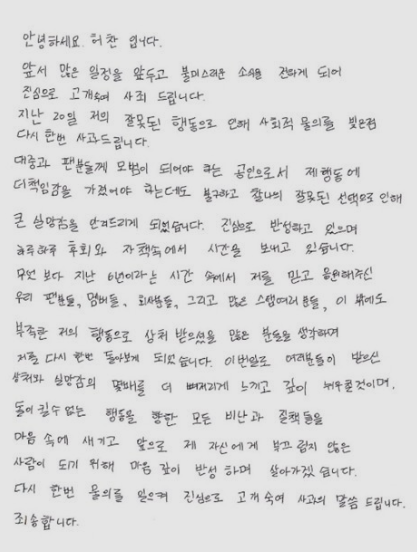 안녕하세요. 허찬 입니다.
앞서 많은 일정을 앞두고 불미스러운 소식을 전하게 되어
진심으로 고개숙여 사죄 드립니다.
지난 20일 저의 잘못된 행동으로 인해 사회적 물의를 빚은점
다시 한번 사과드립니다.
대중과 팬분들께 모범이 되어야 하는 공인으로서 제 행동에
더 책임감을 가졌어야 하는데도 불구하고 찰나의 잘못된 선택으로 인해
큰 실망감을 안겨드리게 되었습니다. 진심으로 반성하고 있으며
하루하루 후회와 자책속에서 시간을 보내고 있습니다.
무엇 보다 지난 6년이라는 시간 속에서 저를 믿고 응원해주신
우리 팬분들, 멤버들, 회사분들, 그리고 많은 스탭여러분들, 이 밖에도
부족한 저의 행동으로 상처 받으셨을 많은 분들을 생각하며
저를 다시 한번 돌아보게 되었습니다. 이번일로 여러분들이 받으신
상처와 실망감의 몇배를 더 뼈저리게 느끼고 깊이 뉘우칠것이며,
돌이킬수 없는 행동을 향한 모든 비난과 질책들을
마음 속에 새기고 앞으로 제 자신에게 부끄럽지 않은
사람이 되기 위해 마음 깊이 반성 하며 살아가겠습니다.
다시 한번 물의를 일으켜 진심으로 고개 숙여 사과의 말씀 드립니다.
죄송합니다.